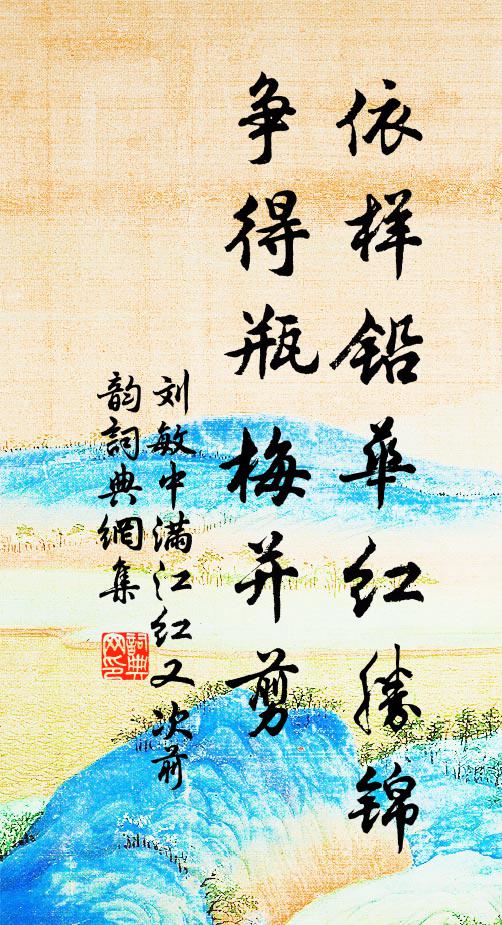 依样铅华红勝锦
争得瓶梅并剪
刘敏中满江红又次前
韵詞典網集
詞典网印